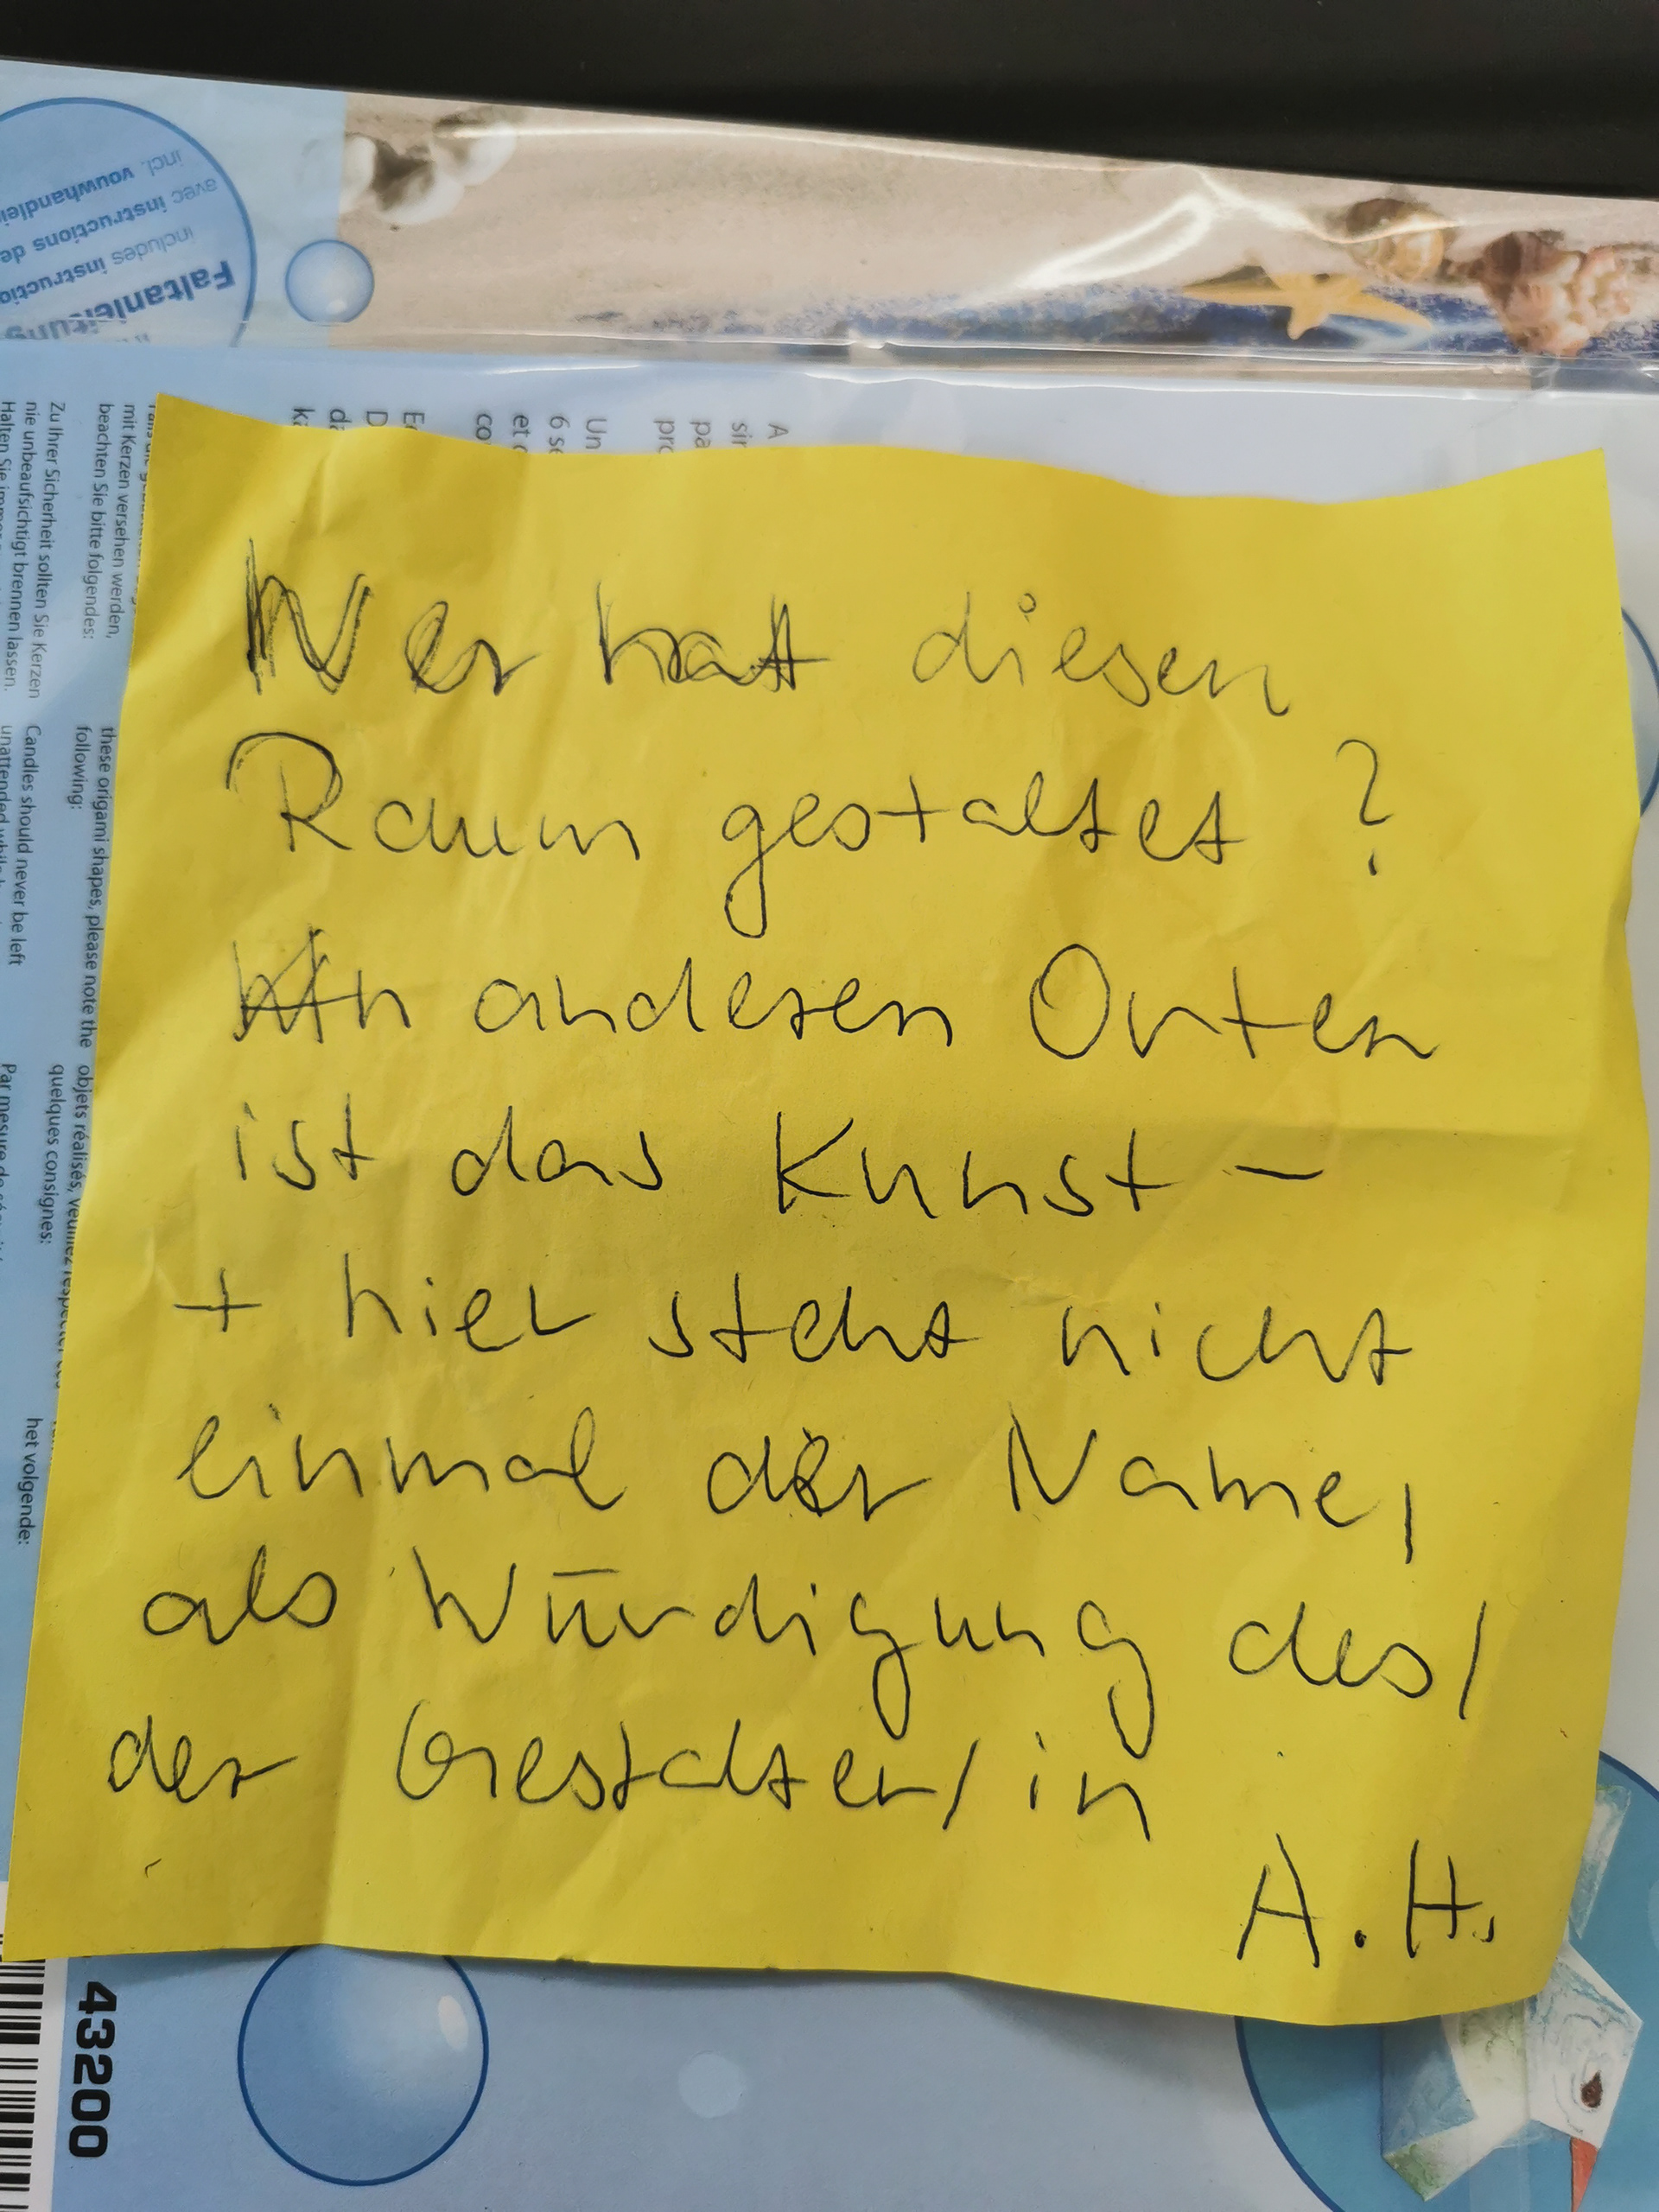 Wer hat diesen
Raum gestaltet?
An anderen Orten
ist das Kunst –
+ hier steht nicht
einmal der Name,
als Würdigung des/
der Gestalter/in
A.H.
incl. vouwhandlei
avec instructions de
includes instructio
Faltanleitung
mit Kerzen versehen werden,
beachten Sie bitte folgendes:
Zu Ihrer Sicherheit sollten Sie Kerzen
nie unbeaufsichtigt brennen lassen.
Halten Sie immer
these origami shapes, please note the
following:
Candles should never be left
unattended while
objets réalisés, veuillez respecter ces
quelques consignes:
Par mesure de
het volgende:
43200